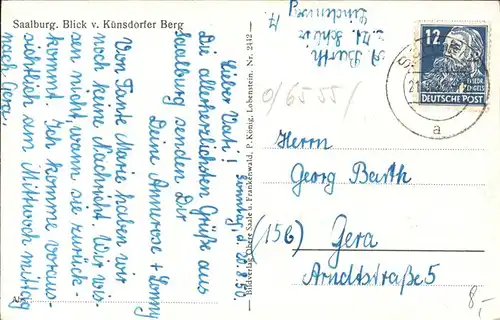 Saalburg. Blick v. Künsdorfer Berg
Sonntag, d. 20.8.50.
Lieber Vati!
Die allerherzlichsten Grüße aus
Saalburg senden Dir
Deine Annerose + Conny
Von Tante Marie haben wir
noch keine Nachricht. Wir wis-
sen nicht, wann sie zurück-
kommt. Ich komme voraus-
sichtlich am Mittwoch mittag
nach Gera.
Bildverlag Obere Saale u. Frankenwald, P. König, Lobenstein. Nr. 2442
A. Barth
Lindenweg 7.
0/6555/
12
FRIEDR.
ENGELS
DEUTSCHE POST
21
a
Herrn
Georg Barth
(15b) Gera
Arndtstraße 5
8,-